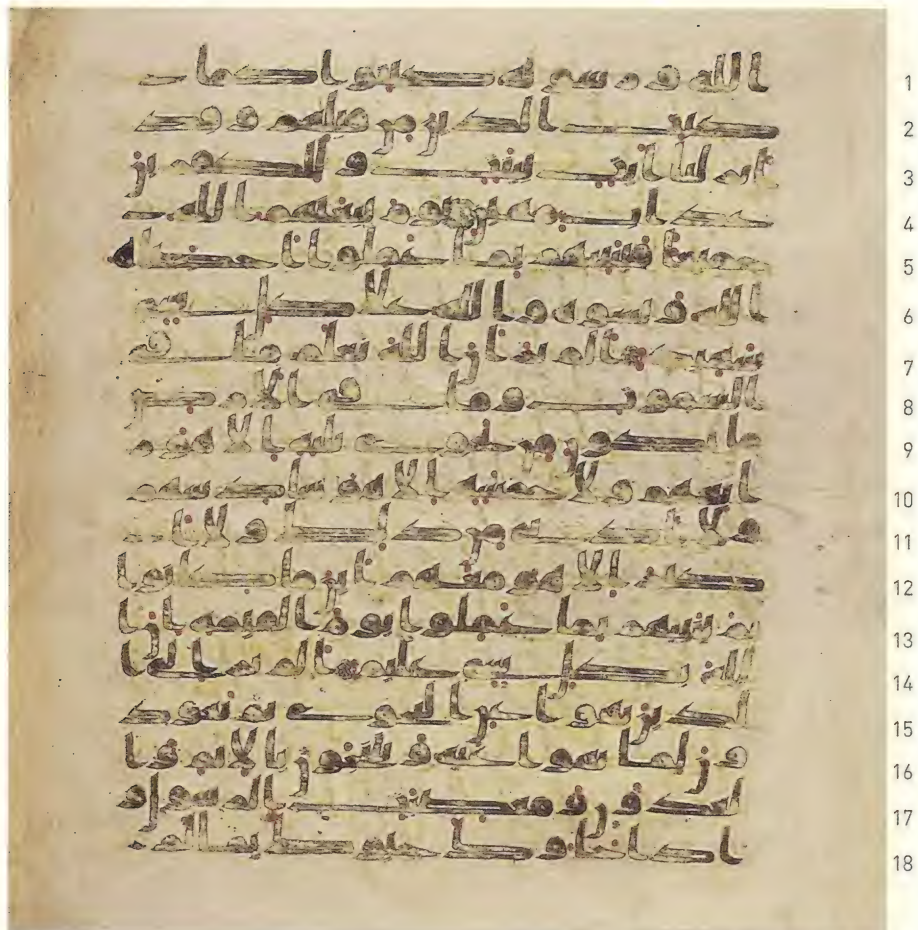 الله ورسوله كبتوا كما
كبت الذين من قبلهم وقد
انزلنا ايت بينت وللكفرين
عذاب مهين يوم يبعثهم الله
جميعا فينبئهم بما عملوا احصه
الله ونسوه والله على كل شي
شهيد الم تر ان الله يعلم ما في
السموت وما في الارض
ما يكون من نجوى ثلثة الا هو ر
ابعهم ولا خمسة الا هو سادسهم
ولا ادنى من ذلك ولا ا
كثر الا هو معهم اين ما كانوا
ثم ينبئهم بما عملوا يوم القيمة ان
الله بكل شي عليم الم تر الى ا
لذين نهوا عن النجوى ثم يعود
ون لما نهوا عنه ويتنجون بالاثم وا
لعدون ومعصيت الرسول و
اذا جاوك حيوك بما لم
1
2
3
4
5
6
7
8
9
10
11
12
13
14
15
16
17
18